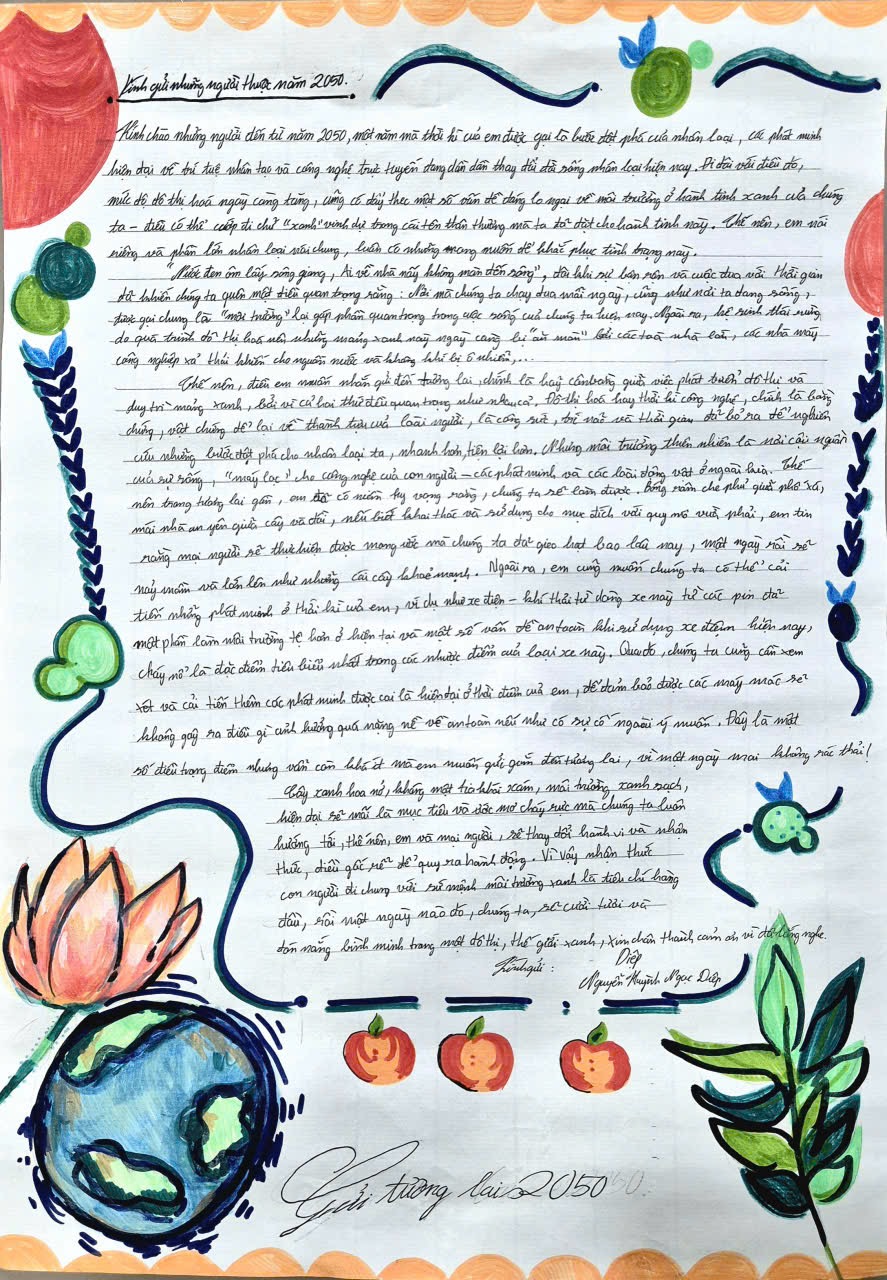 Kính gửi những người thuộc năm 2050.
Kính chào những người đến từ năm 2050, một năm mà thời kì của em được gọi là bước đột phá của nhân loại, các phát minh
hiện đại về trí tuệ nhân tạo và công nghệ trực tuyến đang dần dần thay đổi đời sống nhân loại hiện nay. Đi đôi với điều đó,
mức độ đô thị hoá ngày càng tăng, cũng có đây theo một số vấn đề đáng lo ngại về môi trường ở hành tinh xanh của chúng
ta – điều có thể cướp đi chữ "xanh" vinh dự trong cái tên thân thương mà ta đã đặt cho hành tinh này. Thế nên, em nói
riêng và phần lớn nhân loại nói chung, luôn có những mong muốn để khắc phục tình trạng này.
"Nước đen ôm lấy sông giang, Ai về nhà nấy không màn đến sông", đôi khi sự bận rộn và cuộc đua với thời gian
đã khiến chúng ta quên một điều quan trọng rằng: Nơi mà chúng ta chạy đua mỗi ngày, cũng như nơi ta đang sống,
được gọi chung là "môi trường" lại góp phần quan trọng trong cuộc sống của chúng ta hiện nay. Ngoài ra, hệ sinh thái rừng
do quá trình đô thị hoá nên những mảng xanh nay ngày càng bị "ăn mòn" bởi các toà nhà lớn, các nhà máy
công nghiệp xả thải khiến cho nguồn nước và không khí bị ô nhiễm,...
Thế nên, điều em muốn nhắn gửi đến tương lai, chính là hãy cân bằng giữa việc phát triển đô thị và
duy trì mảng xanh, bởi vì cả hai thứ đều quan trọng như nhau cả. Đô thị hoá hay thời kì công nghệ, chính là bằng
chứng, vật chứng để lại về thành tựu của loài người, là công sức, trí não và thời gian đã bỏ ra để nghiên
cứu những bước đột phá cho nhân loại ta, nhanh hơn, tiện lợi hơn. Nhưng môi trường thiên nhiên là nơi cội nguồn
của sự sống, "máy lọc" cho công nghệ của con người – các phát minh và các loài động vật ở ngoài kia. Thế
nên trong tương lai gần, em có niềm hy vọng rằng, chúng ta sẽ làm được. Bóng râm che phủ giữa phố xá,
mái nhà an yên giữa cây và đồi, nếu biết khai thác và sử dụng cho mục đích với quy mô vừa phải, em tin
rằng mọi người sẽ thực hiện được mong ước mà chúng ta đã gieo hạt bao lâu nay, một ngày rồi sẽ
nảy mầm và lớn lên như những cái cây khoẻ mạnh. Ngoài ra, em cũng muốn chúng ta có thể cải
tiến những phát minh ở thời kì của em, ví dụ như xe điện – khí thải từ dòng xe này từ các pin đã
một phần làm môi trường tệ hơn ở hiện tại và một số vấn đề an toàn khi sử dụng xe điện hiện nay,
cháy nổ là đặc điểm tiêu biểu nhất trong các nhược điểm của loại xe này. Qua đó, chúng ta cũng cần xem
xét và cải tiến thêm các phát minh được coi là hiện đại ở thời điểm của em, để đảm bảo được các máy móc sẽ
không gây ra điều gì ảnh hưởng quá nặng nề về an toàn nếu như có sự cố ngoài ý muốn. Đây là một
số điều trọng điểm nhưng vẫn còn khá ít mà em muốn gửi gắm đến tương lai, vì một ngày mai không rác thải!
Cây xanh hoa nở, không một tia khói xám, môi trường xanh sạch,
hiện đại sẽ mãi là mục tiêu và ước mơ cháy rực mà chúng ta luôn
hướng tới, thế nên, em và mọi người, sẽ thay đổi hành vi và nhận
thức, điều gốc rễ để quy ra hành động. Vì vậy nhận thức
con người đi chung với sứ mệnh môi trường xanh là tiêu chí hàng
đầu, rồi một ngày nào đó, chúng ta, sẽ cười tươi và
đón nắng bình minh trong một đô thị, thế giới xanh, xin chân thành cảm ơn vì đã lắng nghe.
Kính gửi: Diệp
Nguyễn Huỳnh Ngọc Diệp
Gửi tương lai 2050